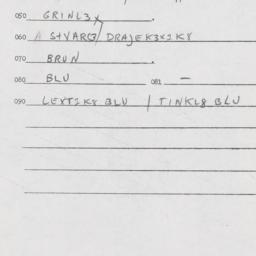 050 GRINL3X.
060 A STVARC3/ DRAJEK3X2K8
070 BRUN.
080 BLU 081 –
090 LEXT2K8 BLU / TINKL8 BLU